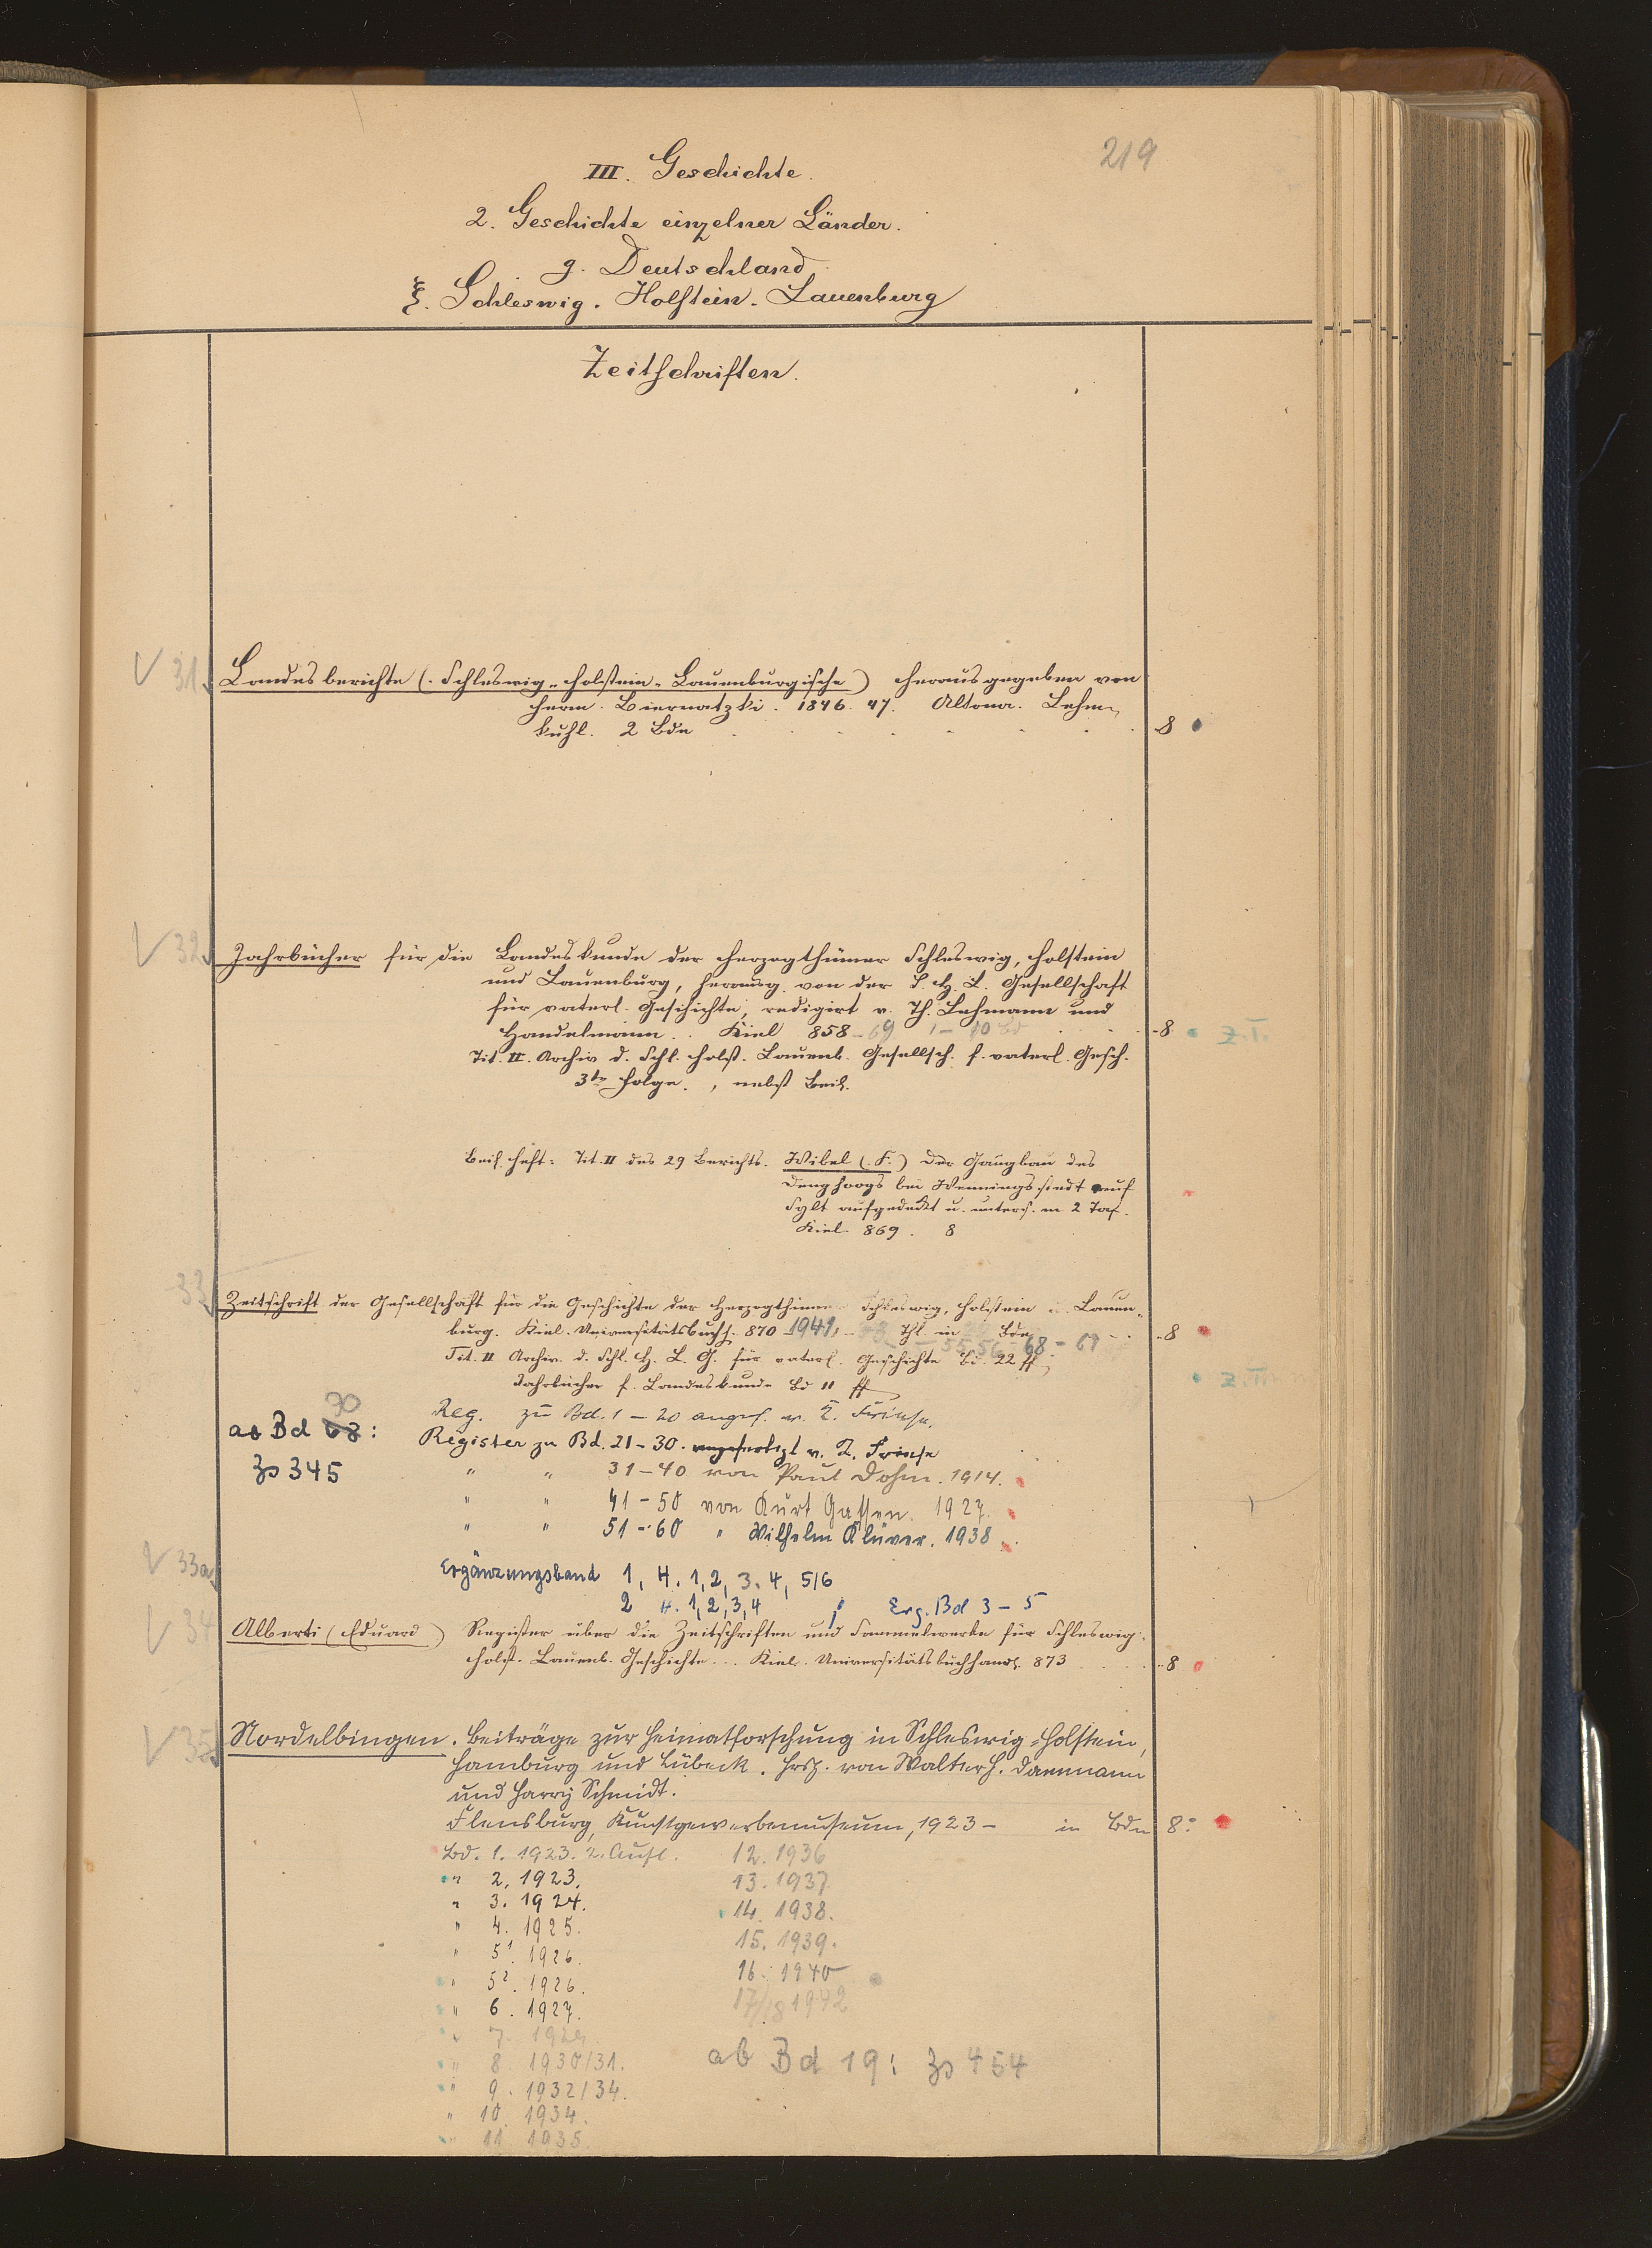 219
III. Geschichte.
2. Geschichte einzelner Länder.
g. Deutschland.
ξ. Schleswig. Holstein. Lauenburg
Zeitschriften.
√ 31. Landesberichte (Schleswig-Holstein-Lauenburgische) herausgegeben von
Herm. Biernatzki. 1846. 47. Altona. Lehm-
kuhl. 2 Bde . . . . . . 8
√ 32. Jahrbücher für die Landeskunde der Herzogthümer Schleswig, Holstein
und Lauenburg, herausg. von der S. H. L. Gesellschaft
für vaterl. Geschichte, redigirt v. Th. Lehmann und
Handelmann . . Kiel 858-69 1-10 Bd . . 8 Z.T.
Tit. II. Archiv d. Schl. Holst. Lauenb. Gesellsch. f. vaterl. Gesch.
3te Folge. , nebst Beih.
Beih. heft: Tit. II des 29 Berichts. Wibel (F.) Der Gangbau des
Denghoogs bei Wenningstedt auf
Sylt aufgedeckt u. unters. m 2 Taf.
Kiel. 869. 8
33. Zeitschrift der Gesellschaft für die Geschichte der Herzogthümer Schleswig, Holstein u. Lauen-
burg. Kiel. Universitätsbuchh. 870-1941, Thl. in Bde 55 56 - 68 - 69 . . 8
Tit. II Archiv. d. Schl. H. L. G. für vaterl. Geschichte Bd. 22 ff;
Jahrbücher f. Landeskunde Bd 11 ff
Reg. zu Bd. 1-20 angef. v.
70
ab Bd 68: Register zu Bd. 21-30. angefertigt v.
Zs 345
" " 31-40 von Paul Dohm. 1914.
" " 41-50 von Kurt Gassen. 1927.
" " 51-60 " Wilhelm Klüver. 1938.
√ 33a Ergänzungsband 1, H. 1, 2, 3. 4, 5/6
2 H. 1, 2, 3, 4 ; Erg. Bd 3-5
√ 34 Alberti (Eduard) Register über die Zeitschriften und Sammelwerke für Schleswig-
Holst. Lauenb. Geschichte . . . Kiel. Universitätsbuchhandl. 873 . . . 8
√ 35. Nordelbingen. Beiträge zur Heimatforschung in Schleswig-Holstein,
Hamburg und Lübeck. Hrsg. von Walter H. Dammann
und Harry Schmidt.
Flensburg, Kunstgewerbemuseum, 1923- in Bdn 8°
Bd. 1. 1923. 2. Aufl. 12. 1936
" 2. 1923. 13. 1937.
" 3. 1924. 14. 1938.
" 4. 1925. 15. 1939.
" 5¹. 1926. 16. 1940
" 5². 1926. 17/18 1942
" 6. 1927.
" 7.
" 8. 1930/31. ab Bd 19: Zs 454
" 9. 1932/34.
" 10. 1934.
" 11. 1935